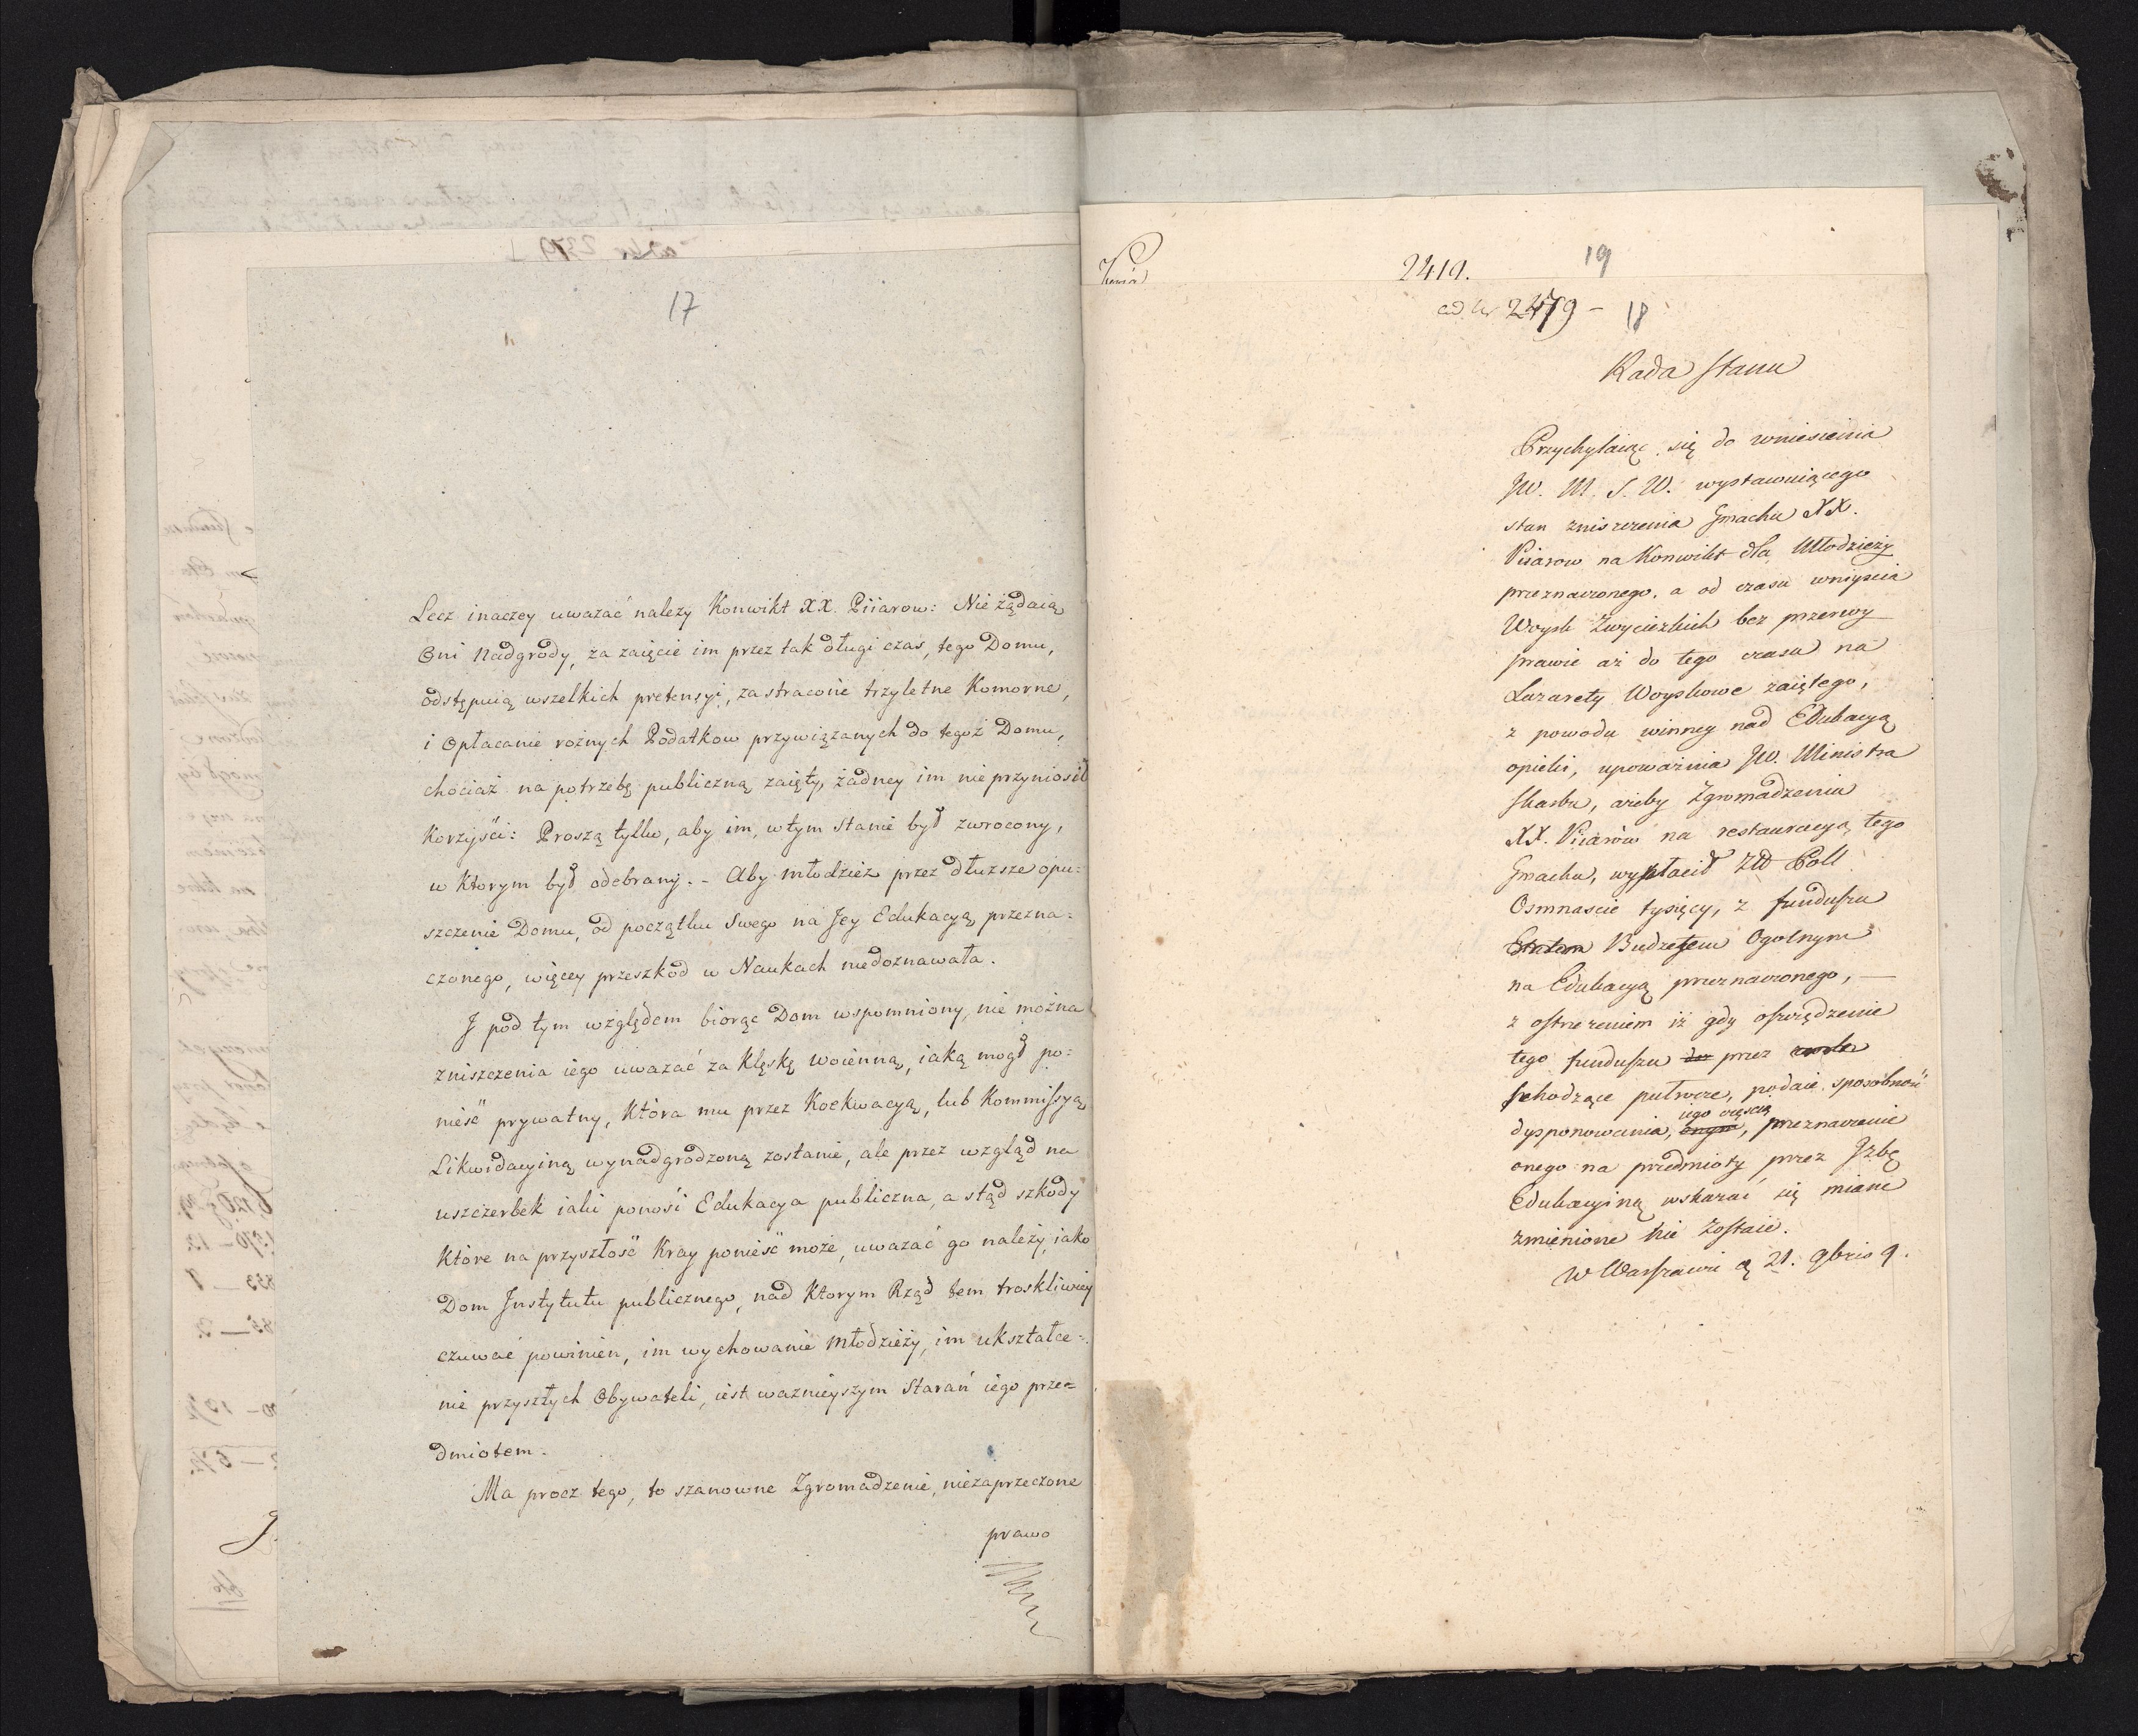 17
Lecz inaczey uważać należy Konwikt XX. Piiarow: Nie żądaią
Oni Nadgrody, za zaięcie im przez tak długi czas, tego Domu,
odstępuią wszelkich pretensyi, za stracone trzyletne Komorne,
i Opłacanie rożnych Podatkow przywiązanych do tegoż Domu,
chociaż na potrzebę publiczną zaięty, żadney im nie przyniosił
Korzyści: Proszą tylko, aby im, w tym Stanie był zwrocony,
w Ktorym był odebrany. - Aby młodzież przez dłuższe opu=
szczenie Domu, od początku Swego na Jey Edukacyą przezna=
czonego, więcey przeszkod w Naukach niedoznawała.
J pod tym względem biorąc Dom wspomniony, nie można
zniszczenia iego uważać za Klęskę woienną, iaką mogł po=
nieść prywatny, Która mu przez Koekwacyą, lub Kommissyą
Likwidacyiną wynadgrodzoną zostanie, ale przez wzgląd na
uszczerbek iaki ponosi Edukacya publiczna, a stąd szkody
Które na przyszłość Kray ponieść może, uważać go należy, iako
Dom Jnstytutu publicznego, nad Ktorym Rząd tem troskliwiey
czuwać powinien, im wychowanie młodzieży, im ukształce=
nie przyszłych Obywateli, iest ważnieyszym Starań iego prze=
dmiotem.
Ma procz tego, to szanowne Zgromadzenie, niezaprzeczone
prawo
2419.
19
ad Nr 2479 -
18
Rada Stanu
Przychylaiąc się do wniesienia
JW. M. S. W. wystawuiącego
stan zniszczenia Gmachu XX.
Piiarow na Konwikt dla Młodzieży
przeznaczonego, a od czasu wniyscia
Woysk Zwycięzkich bez przerwy
prawie aż do tego czasu na
Lazarety Woyskowe zaiętego,
z powodu winney nad Edukacyą
opieki, upoważnia JW. Ministra
Skarbu, ażeby Zgromadzeniu
XX. Piiarów na restauracyą tego
Gmachu, wypłacił Zł Poll
Osmnascie tysięcy, z funduszu
Budżetem Ogolnym
na Edukacyą przeznaczonego, —
z ostrzeżeniem iż gdy oszczędzenie
tego funduszu przez
schodzące połrocze, podaie sposobność
dysponowania, iego częścią, przeznaczenie
onego na przedmioty przez Jzbę
Edukacyiną wskazać się miane
zmienione nie zostaie.
W Warszawie d. 21. 9bris 9.